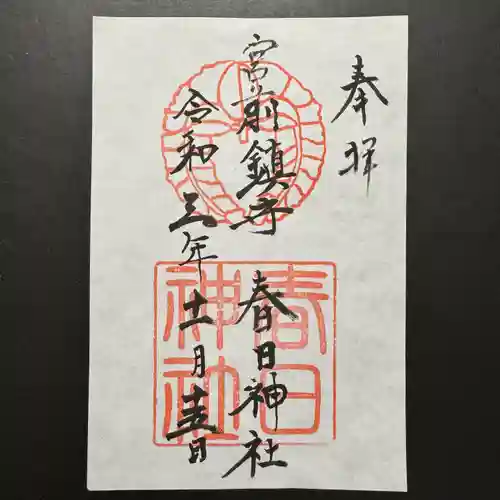 奉拝
宮前鎮守
春日神社
令和三年十一月十五日
春日
神社